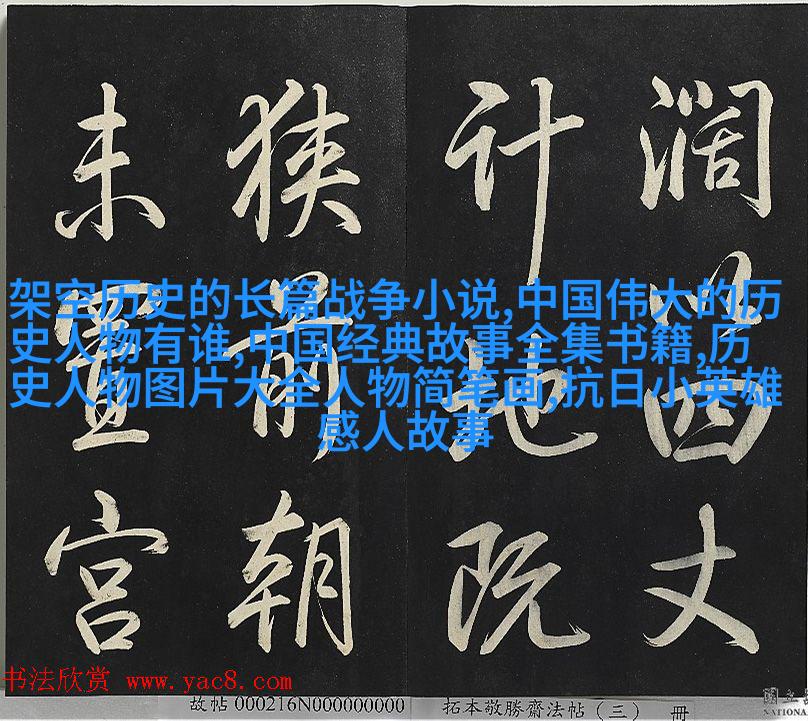 濶四丈
計地既
狹前朝
未置宮
架空历史的长篇战争小说,中国伟大的历
史人物有谁,中国经典故事全集书籍,历
史人物图片大全人物简笔画,抗日小英雄
感人故事
书法欣赏 www.yac8.com
故帖 000216N000000000 拓本敬勝齋法帖（三） 冊
國立
NATIONA